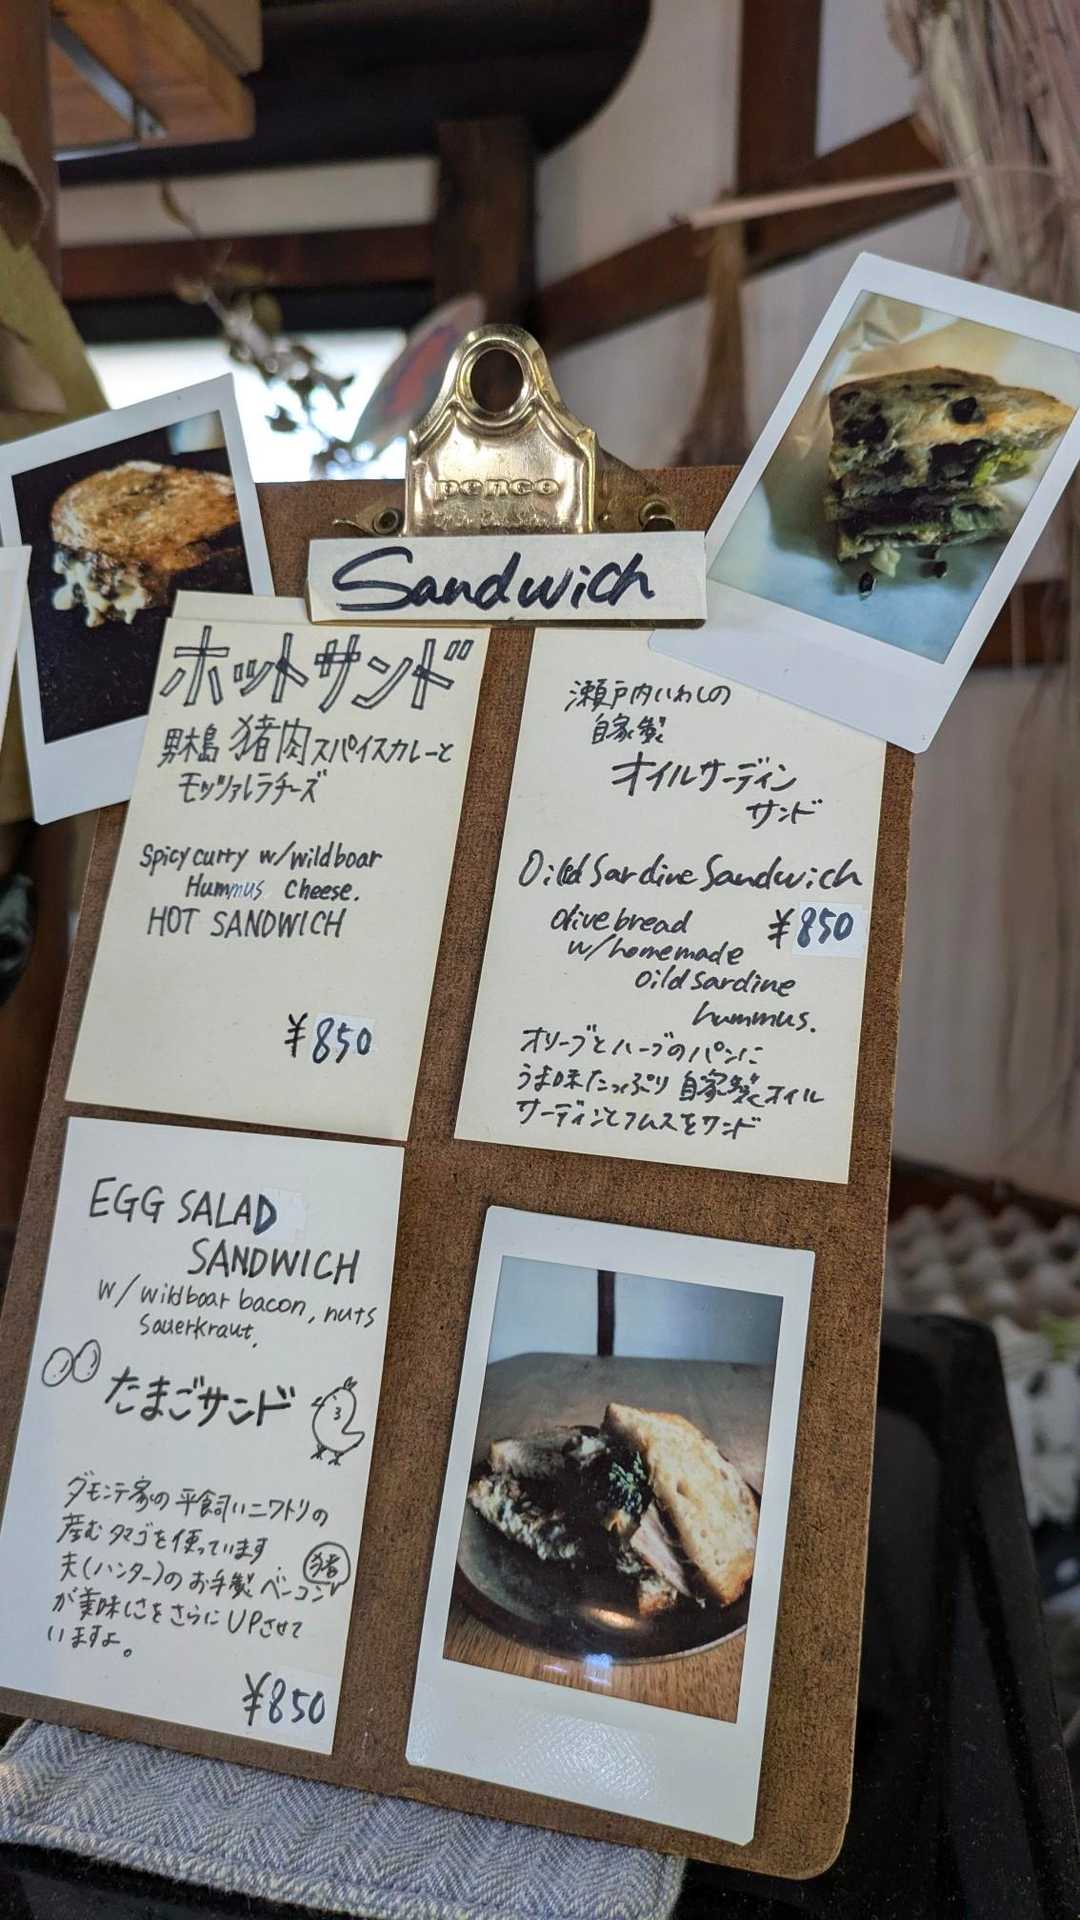 penco
Sandwich
ホットサンド
男木島 猪肉スパイスカレーと
モッツァレラチーズ
Spicy curry w/wildboar
Hummus Cheese.
HOT SANDWICH
¥850
瀬戸内いわしの
自家製
オイルサーディン
サンド
Oild Sardine Sandwich
Olive bread
¥850
w/homemade
Oild Sardine
hummus.
オリーブとハーブのパンに
うま味たっぷり 自家製オイル
サーディンとフムスをサンド
EGG SALAD
SANDWICH
w/wildboar bacon, nuts
Sauerkraut.
たまごサンド
ダモンテ家の平飼いニワトリの
産むタマゴを使っています
夫(ハンター)のお手製ベーコン
猪
が美味しさをさらにUPさせて
いますよ。
¥850